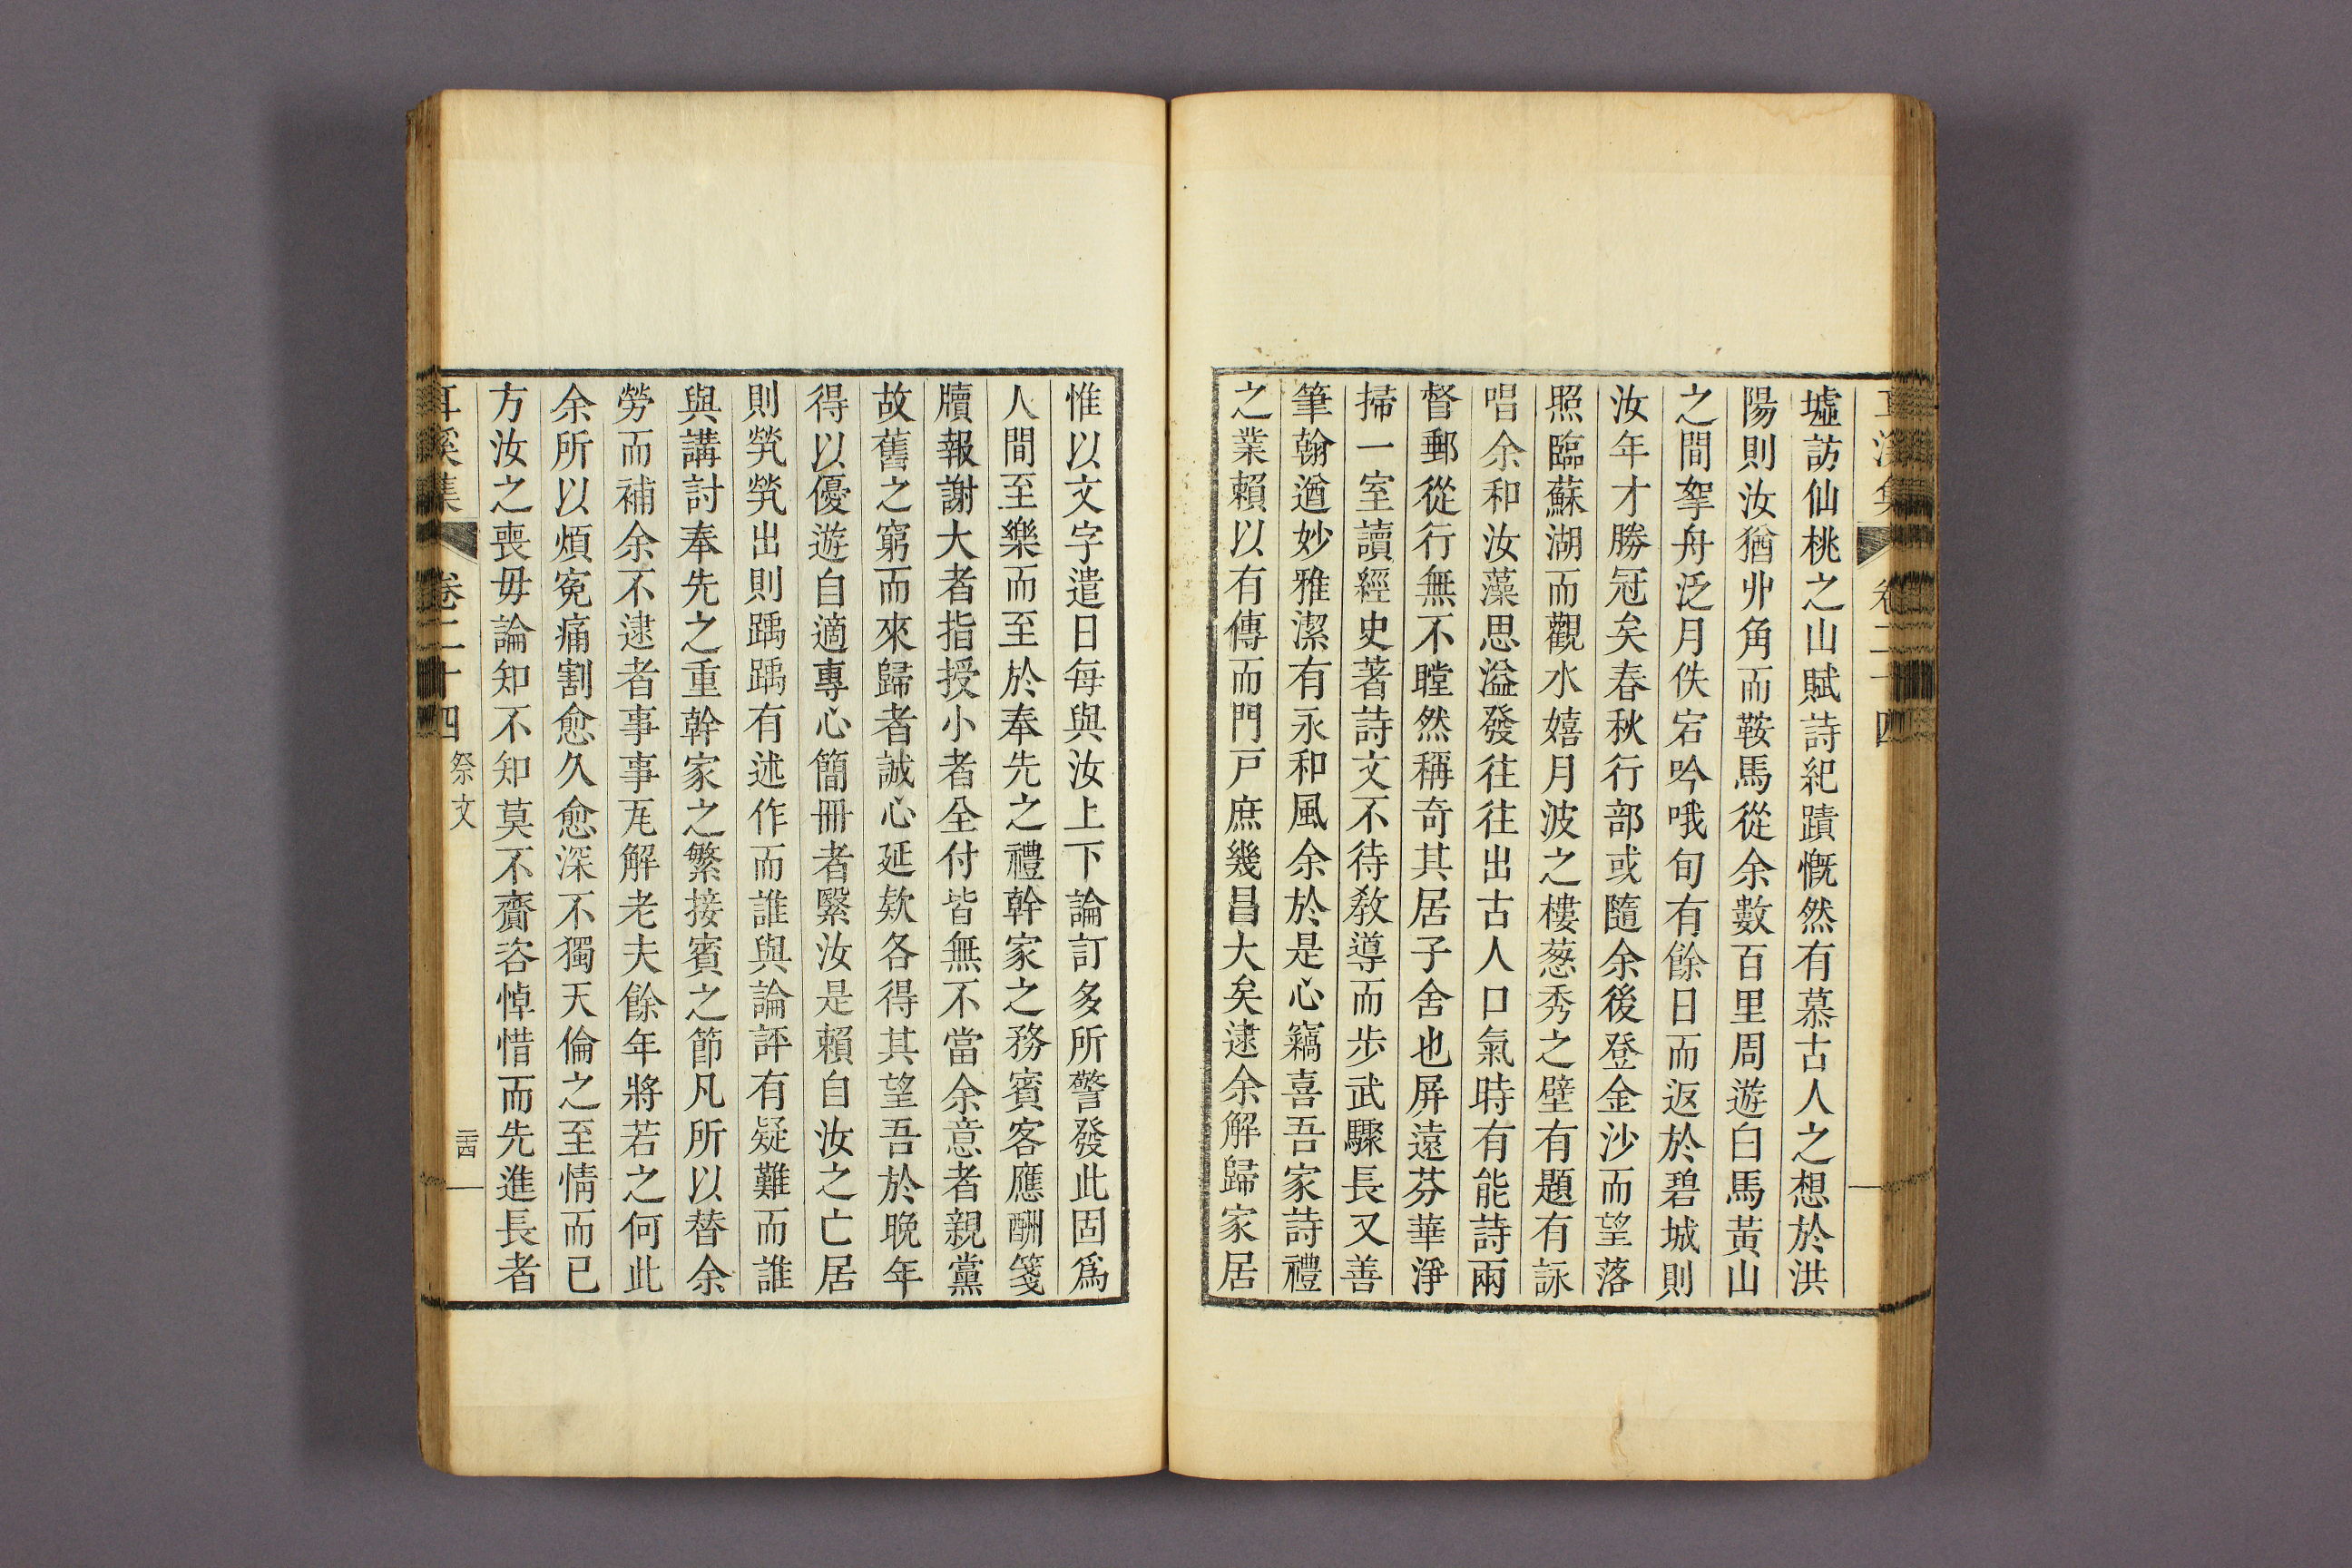 耳溪集 卷二十四
墟訪仙桃之山賦詩紀蹟慨然有慕古人之想於洪
陽則汝猶丱角而鞍馬從余數百里周遊白馬黃山
之間挐舟泛月佚宕吟哦旬有餘日而返於碧城則
汝年才勝冠矣春秋行部或隨余後登金沙而望落
照臨蘇湖而觀水嬉月波之樓葱秀之壁有題有詠
唱余和汝藻思溢發往往出古人口氣時有能詩兩
督郵從行無不瞠然稱奇其居子舍也屏遠芬華淨
掃一室讀經史著詩文不待敎導而步武驟長又善
筆翰遒妙雅潔有永和風余於是心竊喜吾家詩禮
之業賴以有傳而門戶庶幾昌大矣逮余解歸家居
惟以文字遣日每與汝上下論訂多所警發此固爲
人間至樂而至於奉先之禮幹家之務賓客應酬箋
牘報謝大者指授小者全付皆無不當余意者親黨
故舊之窮而來歸者誠心延欵各得其望吾於晩年
得以優遊自適專心簡冊者繄汝是賴自汝之亡居
則煢煢出則踽踽有述作而誰與論評有疑難而誰
與講討奉先之重幹家之繁接賓之節凡所以替余
勞而補余不逮者事事瓦解老夫餘年將若之何此
余所以煩寃痛割愈久愈深不獨天倫之至情而已
方汝之喪毋論知不知莫不齎咨悼惜而先進長者
耳溪集 卷二十四 祭文 二十四